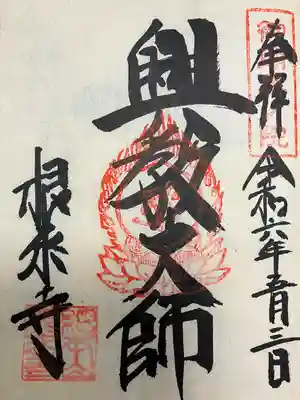 奉拝
令和六年五月三日
興教大師
根来寺